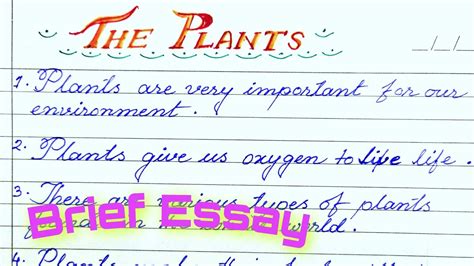 The Plants
__/__/__
1. Plants are very important for our
environment.
2. Plants give us oxygen to live life.
3. There are various types of plants
Brief Essay
in the world.
4. Plants